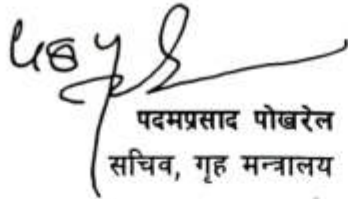 पदमप्रसाद पोखरेल
सचिव, गृह मन्त्रालय